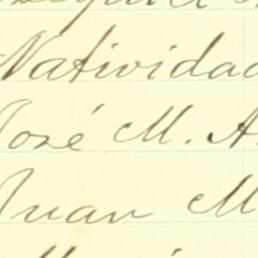 Natividad
José M. A
Juan M